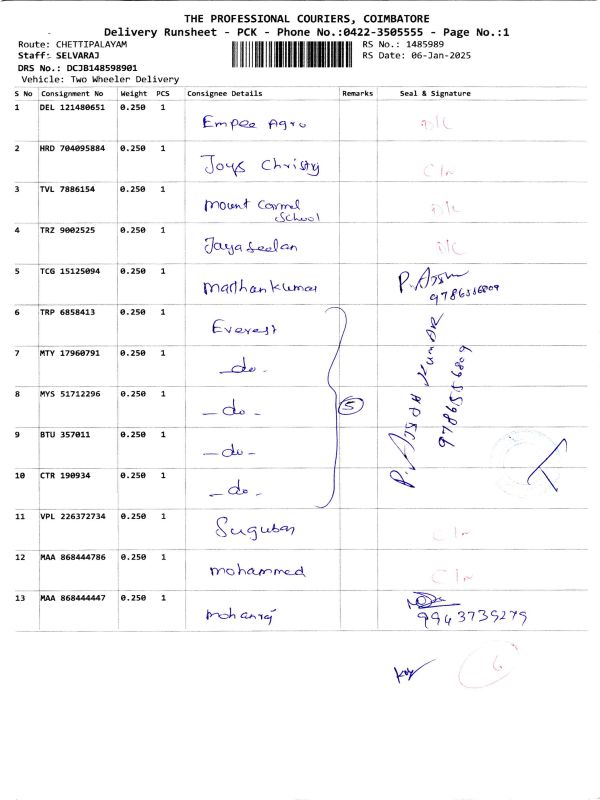 THE PROFESSIONAL COURIERS, COIMBATORE
Delivery Runsheet - PCK - Phone No.:0422-3505555 - Page No.:1
Route: CHETTIPALAYAM RS No.: 1485989
Staff: SELVARAJ RS Date: 06-Jan-2025
DRS No.: DCJB148598901
Vehicle: Two Wheeler Delivery
S No Consignment No Weight PCS Consignee Details Remarks Seal & Signature
1 DEL 121480651 0.250 1 Empee Agro D/L
2 HRD 704095884 0.250 1 Joys Christy C/n
3 TVL 7886154 0.250 1 Mount Carmel School D/L
4 TRZ 9002525 0.250 1 Jayaseelan D/L
5 TCG 15125094 0.250 1 Madhankumar P. 9786556809
6 TRP 6858413 0.250 1 Everest
7 MTY 17960791 0.250 1 -do-
8 MYS 51712296 0.250 1 -do- 5
9 BTU 357011 0.250 1 -do-
10 CTR 190934 0.250 1 -do-
9786556809
11 VPL 226372734 0.250 1 Sugubar C/n
12 MAA 868444786 0.250 1 mohammed C/n
13 MAA 868444447 0.250 1 mohanraj 9943739279
6